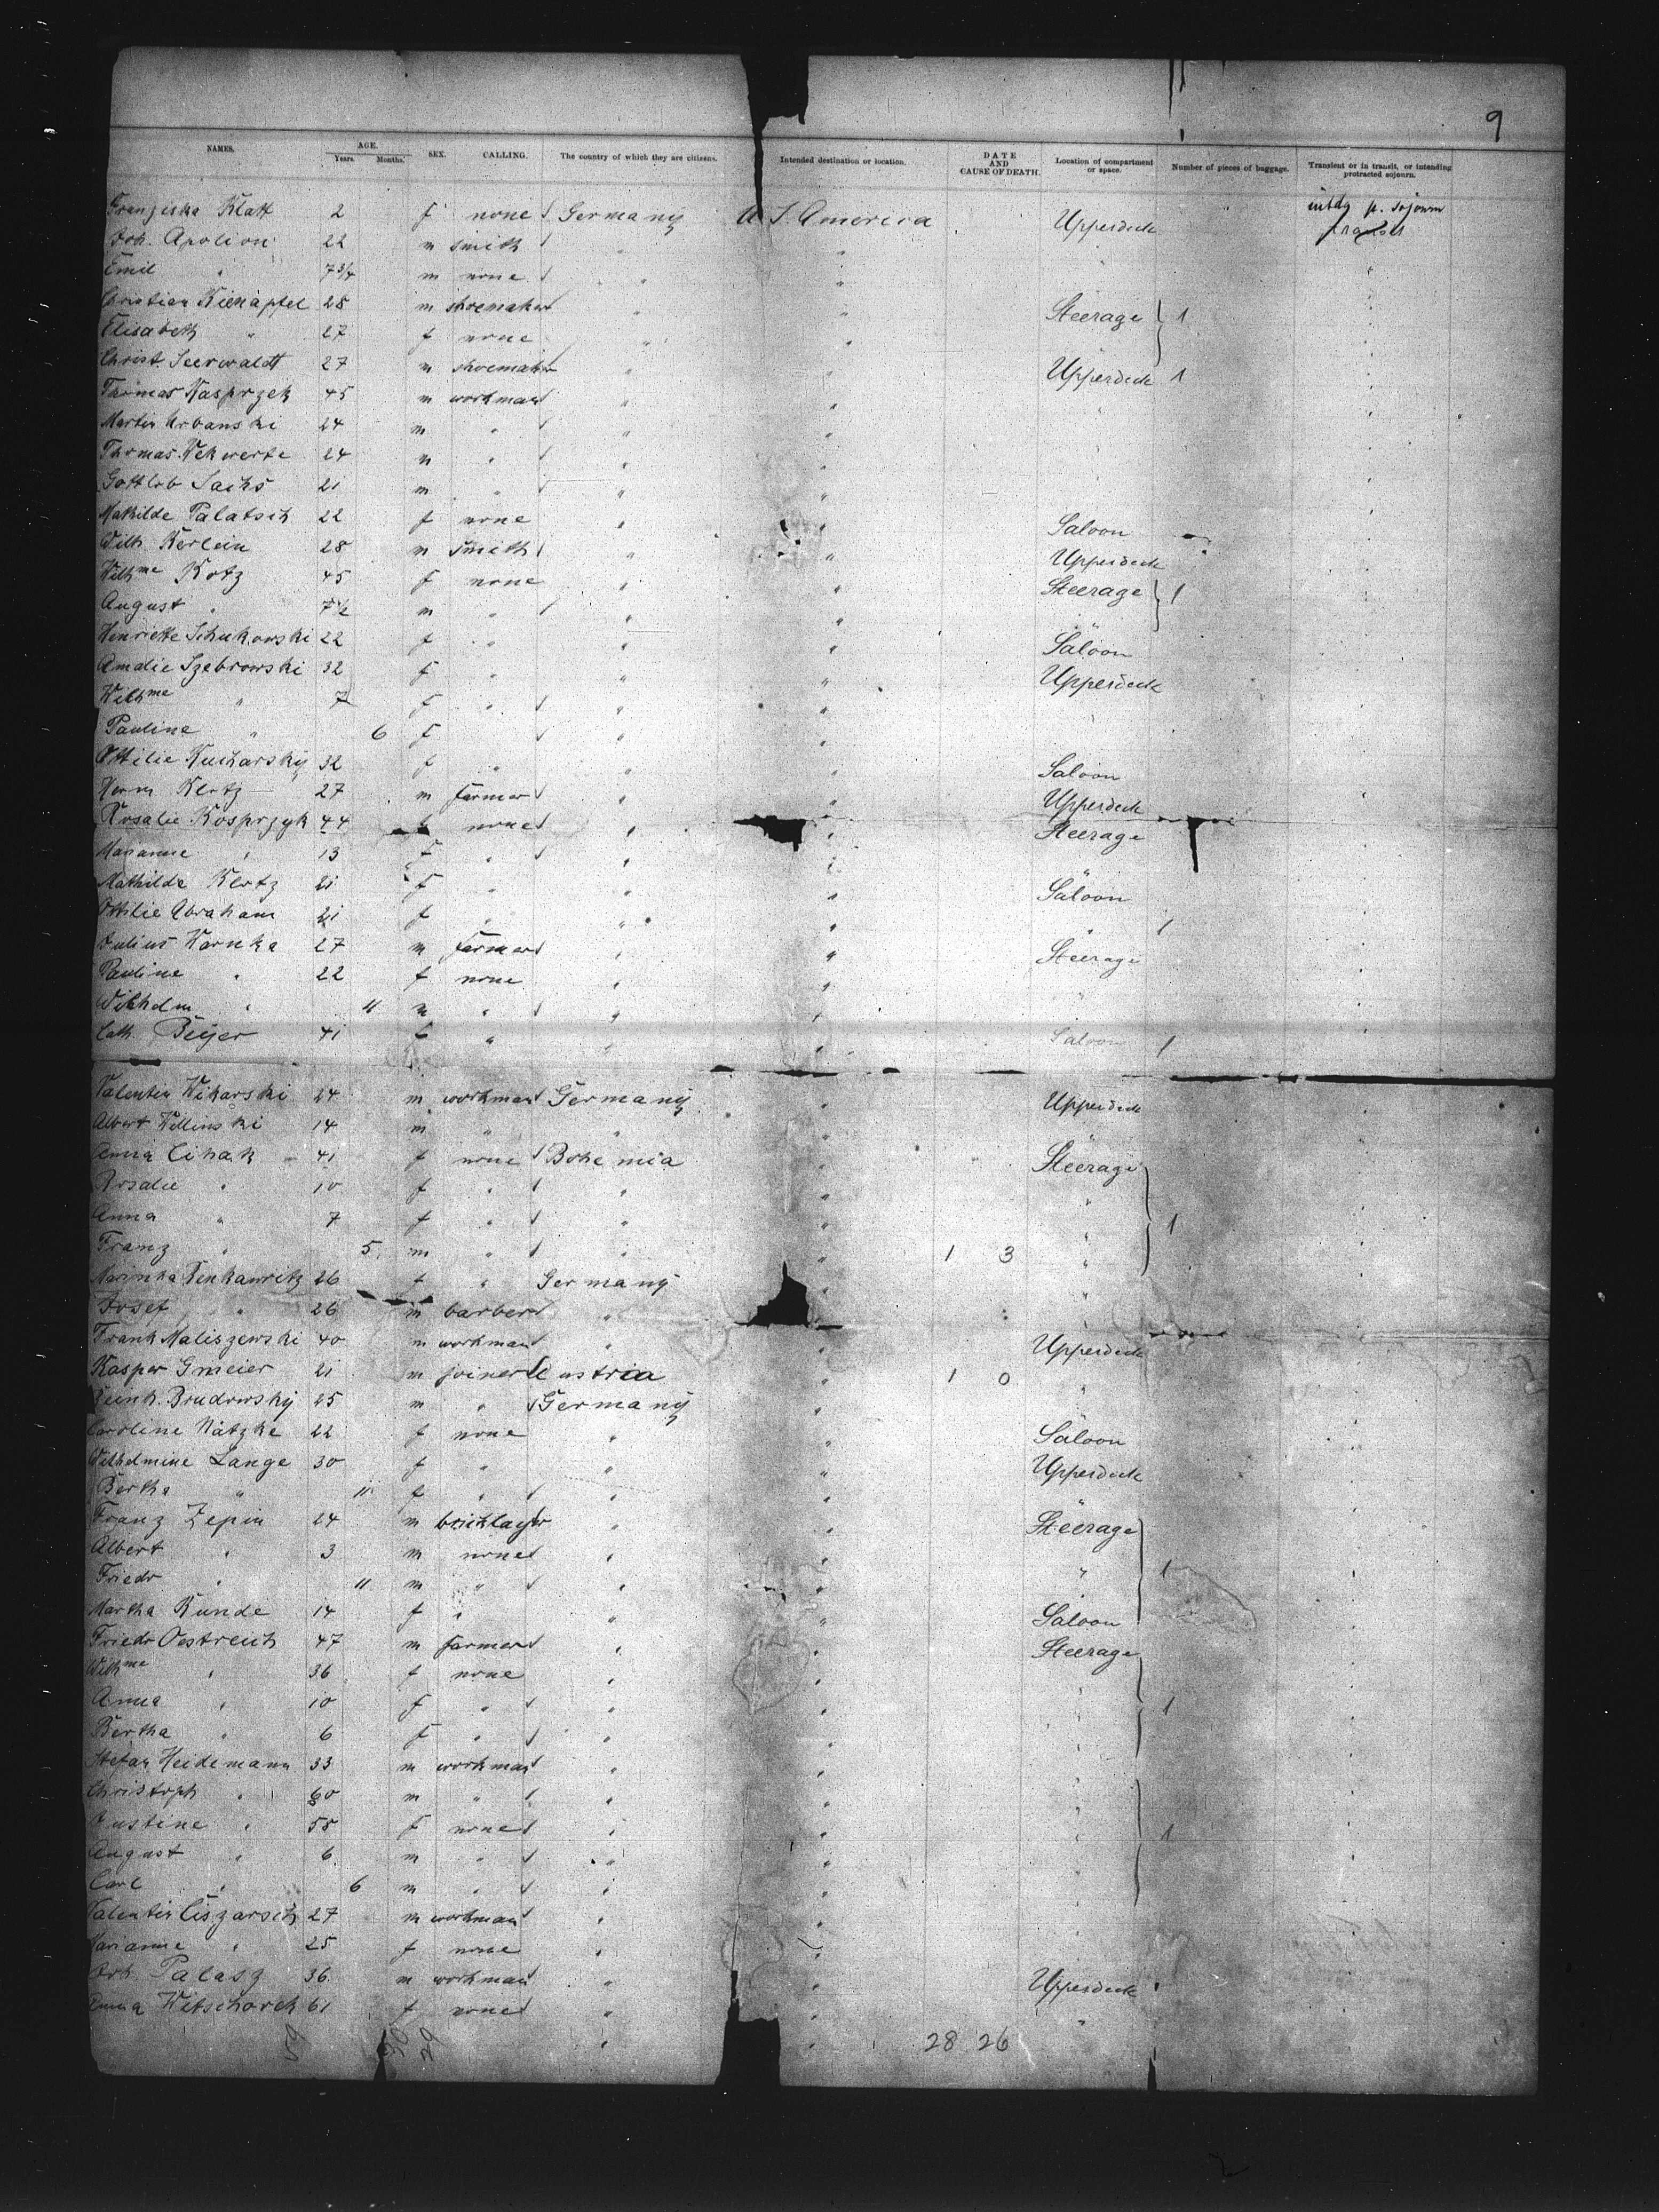 9
NAMES. AGE. Years. Months. SEX. CALLING. The country of which they are citizens. Intended destination or location. DATE AND CAUSE OF DEATH. Location of compartment or space. Number of pieces of baggage. Transient or in transit, or intending protracted sojourn.
Franziska Klatt 2 f none Germany U.S. America Upperdeck intdg p. sojourn
Joh. Apolion 22 m smith " " " transit
Emil " 7 3/4 m none " "
Christian Kienapfel 28 m shoemaker " " Steerage 1
Elisabeth " 27 f none " " "
Christ. Seerwaldt 27 m shoemaker " " Upperdeck 1
Thomas Kasprzek 45 m workman " " "
Martin Urbanski 24 m " " "
Thomas Wekwerte 24 m " " "
Gottlob Sachs 21 m " " "
Mathilde Palatsch 22 f none " " Saloon
Wilh. Kerlein 28 m smith " " Upperdeck
Wilhme Kotz 45 f none " " Steerage 1
August " 7 1/2 m " " "
Henriette Schukowski 22 f " " " Saloon
Amalie Szebrowski 32 f " " " Upperdeck
Wilhme " 7 f " " "
Pauline " 6 f " "
Ottilie Kucharsky 32 f " " " Saloon
Herm Klotz 27 m farmer " " Upperdeck
Rosalie Kosprzyk 44 f none " " Steerage
Marianne " 13 f " " "
Mathilde Klotz 21 f " " " Saloon
Ottilie Abraham 21 f " " " " 1
Julius Warnka 27 m farmer " " Steerage
Pauline " 22 f none " "
Wilhelm " 11 m " " " "
Cath. Beyer 41 f " " " Saloon 1
Valentin Wikarski 24 m workman Germany " Upperdeck
Albert Willinski 14 m " " "
Anna Cihak 41 f none Bohemia " Steerage
Rosalie " 10 f " " " "
Anna " 7 f " " " " 1
Franz " 5 m " " " 1 3 "
Marinka Kenkawitz 26 f " Germany " "
Josef " 26 m barber " "
Frank Maliszewski 40 m workman " " Upperdeck
Kasper Gmeier 21 m joiner Austria " 1 0 "
Reinh. Brudowsky 25 m " Germany "
Caroline Nätzke 22 f none " " Saloon
Wilhelmine Lange 30 f " " " Upperdeck
Bertha " 11 f " " " "
Franz Zepin 24 m bricklayer " " Steerage
Albert " 3 m none " "
Friedr " 11 m " " " " 1
Martha Kunde 14 f " " " Saloon
Friedr Oestreich 47 m farmer " " Steerage
Wilhme " 36 f none " "
Anna " 10 f " " " " 1
Bertha " 6 f " " " "
Stefan Heidemann 33 m workman " "
Christoph " 60 m " " " "
Justine " 58 f none " " " 1
August " 6 m " " "
Carl " 6 m " " " "
Valentin Ciszarsch 27 m workman " "
Marianne " 25 f none " "
Palasz 36 m workman " " Upperdeck
Anna Witschorek 61 f none " " "
59 29 28 26